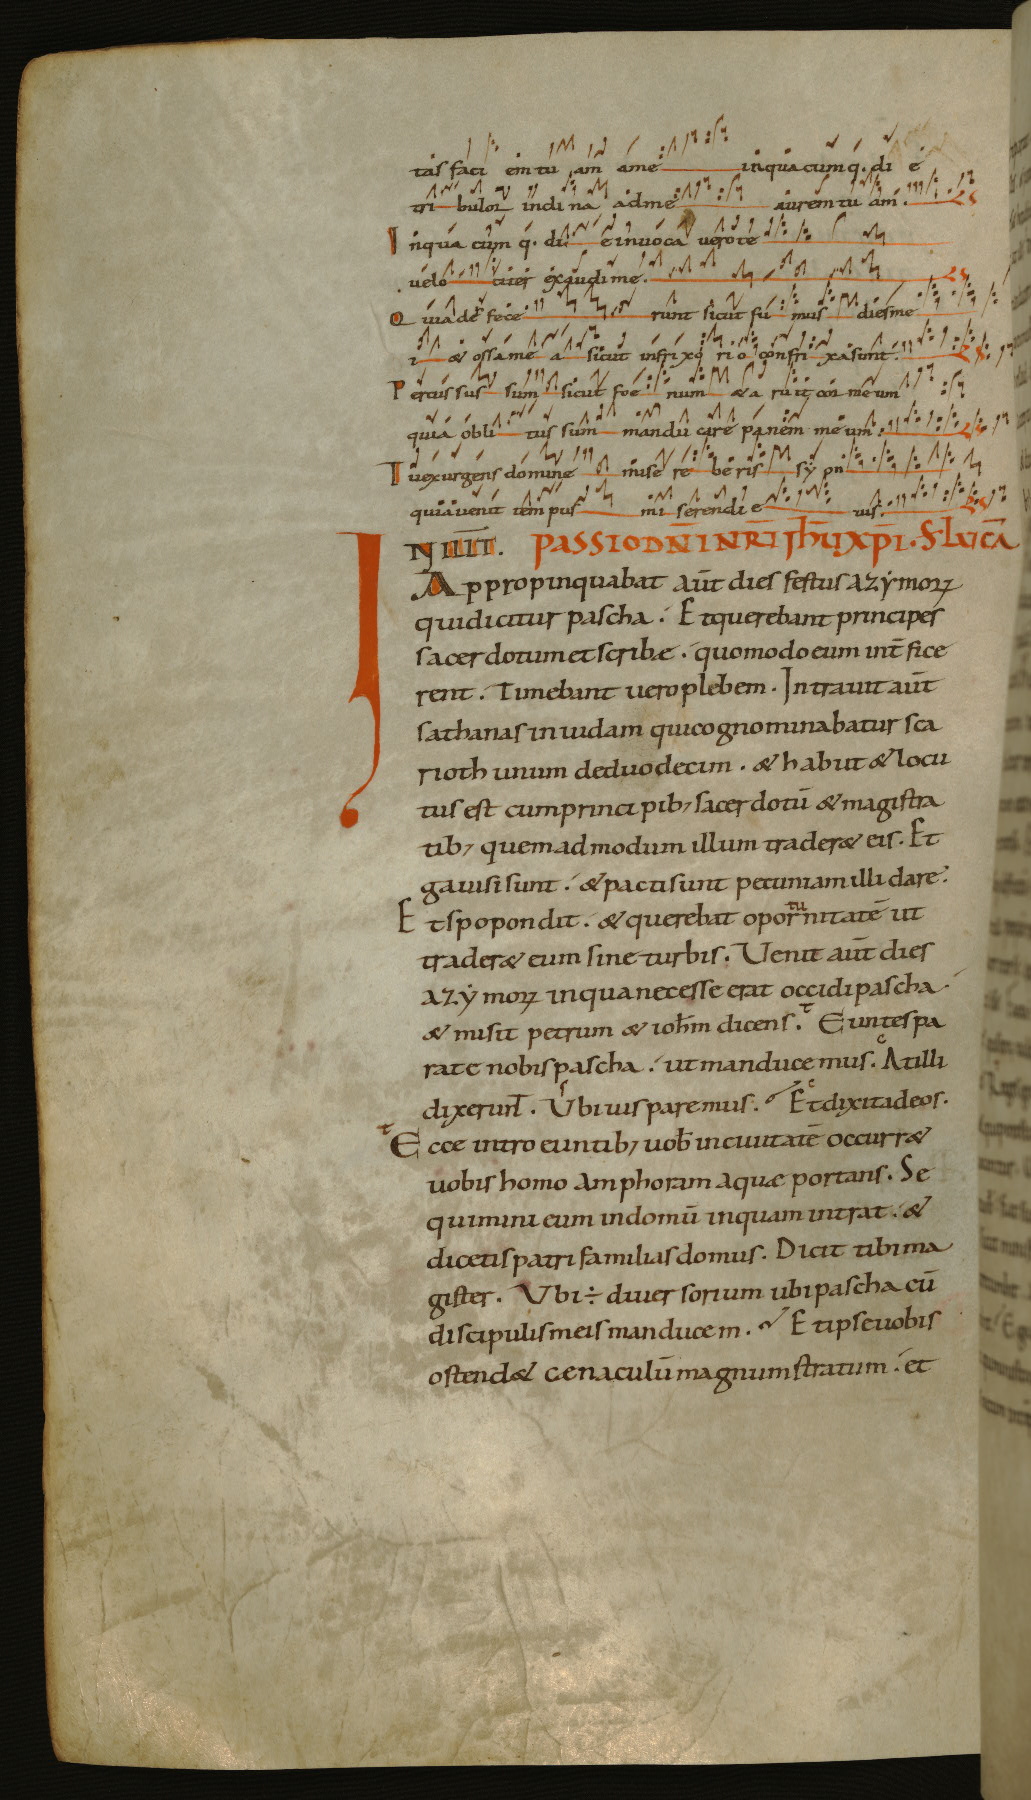 tas faci em tu am ame inquacumq. di e
tri bulor inclina adme aurem tu am.
Inqua cumq. di e inuoca uero te
uelo citer exaudi me.
Quia defece runt sicut fu mus dies me
i & ossa me a sicut infrixo rio confri xa sunt.
Percussus sum sicut foe num & a ruit cor meum
quia obli tus sum mandu care panem meum.
Tu exurgens domine mise re be ris sy on
quia uenit tempus mi serendi e ius.
IN IIII. PASSIO DNI NRI IHU XPI. S. LUCA
Appropinquabat aūt dies festus azẏmoꝝ
qui dicitur pascha. Et querebant principes
sacerdotum et scribæ. quomodo eum int̄fice
rent. Timebant uero plebem. Intrauit aūt
sathanas in iudam qui cognominabatur sca
rioth unum de duodecim. & habiit & locu
tus est cum principib; sacerdotū & magistra
tib; quemadmodum illum trader& eis. Et
gauisi sunt. & pacti sunt pecuniam illi dare.
Et spopondit. & querebat oportunitatē ut
trader& eum sine turbis. Uenit aūt dies
azẏmoꝝ in qua necesse erat occidi pascha.
& misit petrum & ioh̄m dicens. t Euntes pa
rate nobis pascha. ut manducemus. c At illi
dixerunt. s Ubi uis paremus. c Et dixit ad eos.
t Ecce introeuntib; uob̄ in ciuitatē occurr&
uobis homo amphoram aquæ portans. Se
quimini eum in domū in quam intrat. &
dicetis patri familias domus. Dicit tibi ma
gister. Ubi ÷ diuersorium ubi pascha cū
discipulis meis manducem. Et ipse uobis
ostend& cenaculū magnum stratum. et